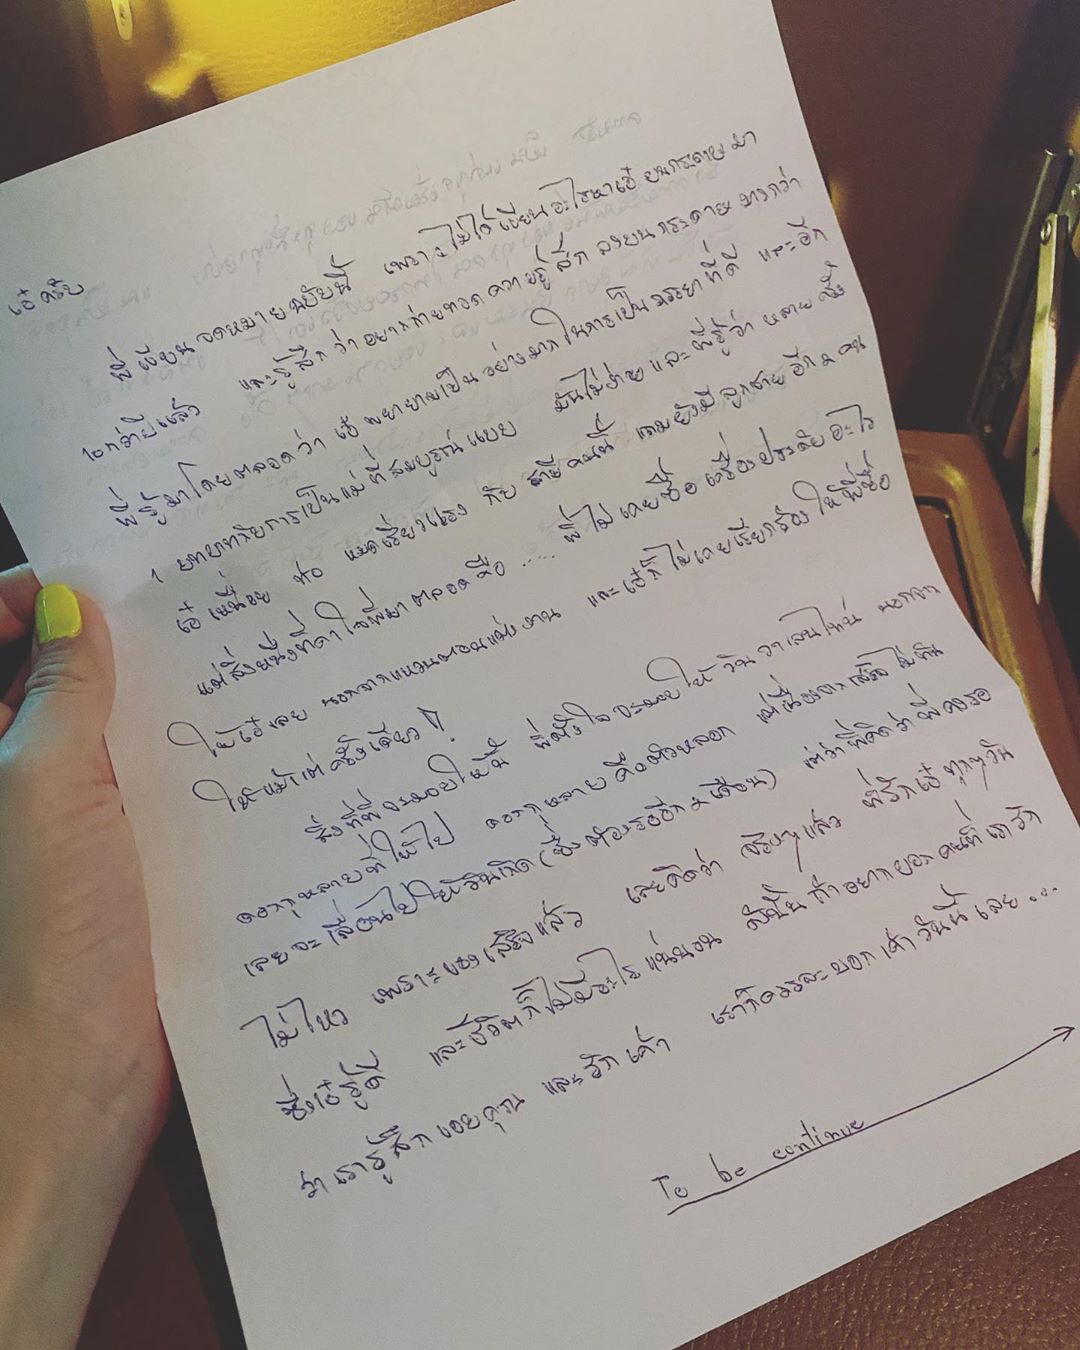 เอ๋ครับ
พี่เขียนจดหมายฉบับนี้ เพราะไม่ได้เขียนอะไรหาเอ๋บนกระดาษมา
10กว่าปีแล้ว และรู้สึกว่าอยากถ่ายทอดความรู้สึกลงบนกระดาษมากกว่า
พี่รู้มาโดยตลอดว่า เอ๋พยายามเป็นอย่างมากในการเป็นภรรยาที่ดี และอีก
1 บทบาทกับการเป็นแม่ที่สมบูรณ์แบบ มันไม่ง่าย และพี่รู้ว่า หลายครั้ง
เอ๋เหนื่อย ท้อ หมดเรี่ยวแรง กับสามีคนนี้ แถมยังมีลูกชายอีก 2 คน
แต่สิ่งหนึ่งที่คาใจพี่มาตลอดคือ .... พี่ไม่เคยซื้อเครื่องประดับอะไร
ให้เอ๋เลย นอกจากแหวนตอนแต่งงาน และเอ๋ก็ไม่เคยเรียกร้องให้พี่ซื้อ
ให้แม้แต่ครั้งเดียว!
สิ่งที่พี่จะมอบให้นี้ พี่ตั้งใจจะมอบให้วันวาเลนไทน์ นอกจาก
ดอกกุหลาบที่ให้ไป ดอกกุหลาบคือตัวหลอก แต่เนื่องจากเสร็จไม่ทัน
เลยจะเลื่อนไปให้วันเกิด (ซึ่งต้องรออีก 2 เดือน) แต่ว่าพี่คิดว่าพี่คงรอ
ไม่ไหว เพราะของเสร็จแล้ว และคิดว่า จริงๆแล้ว พี่รักเอ๋ทุกๆวัน
ซึ่งเอ๋รู้ดี และชีวิตก็ไม่มีอะไรแน่นอน ดังนั้นถ้าอยากบอกคนที่เรารัก
ว่าเรารู้สึกขอบคุณ และรักเค้า เราก็ควรจะบอกเค้าวันนี้เลย...
To be continue